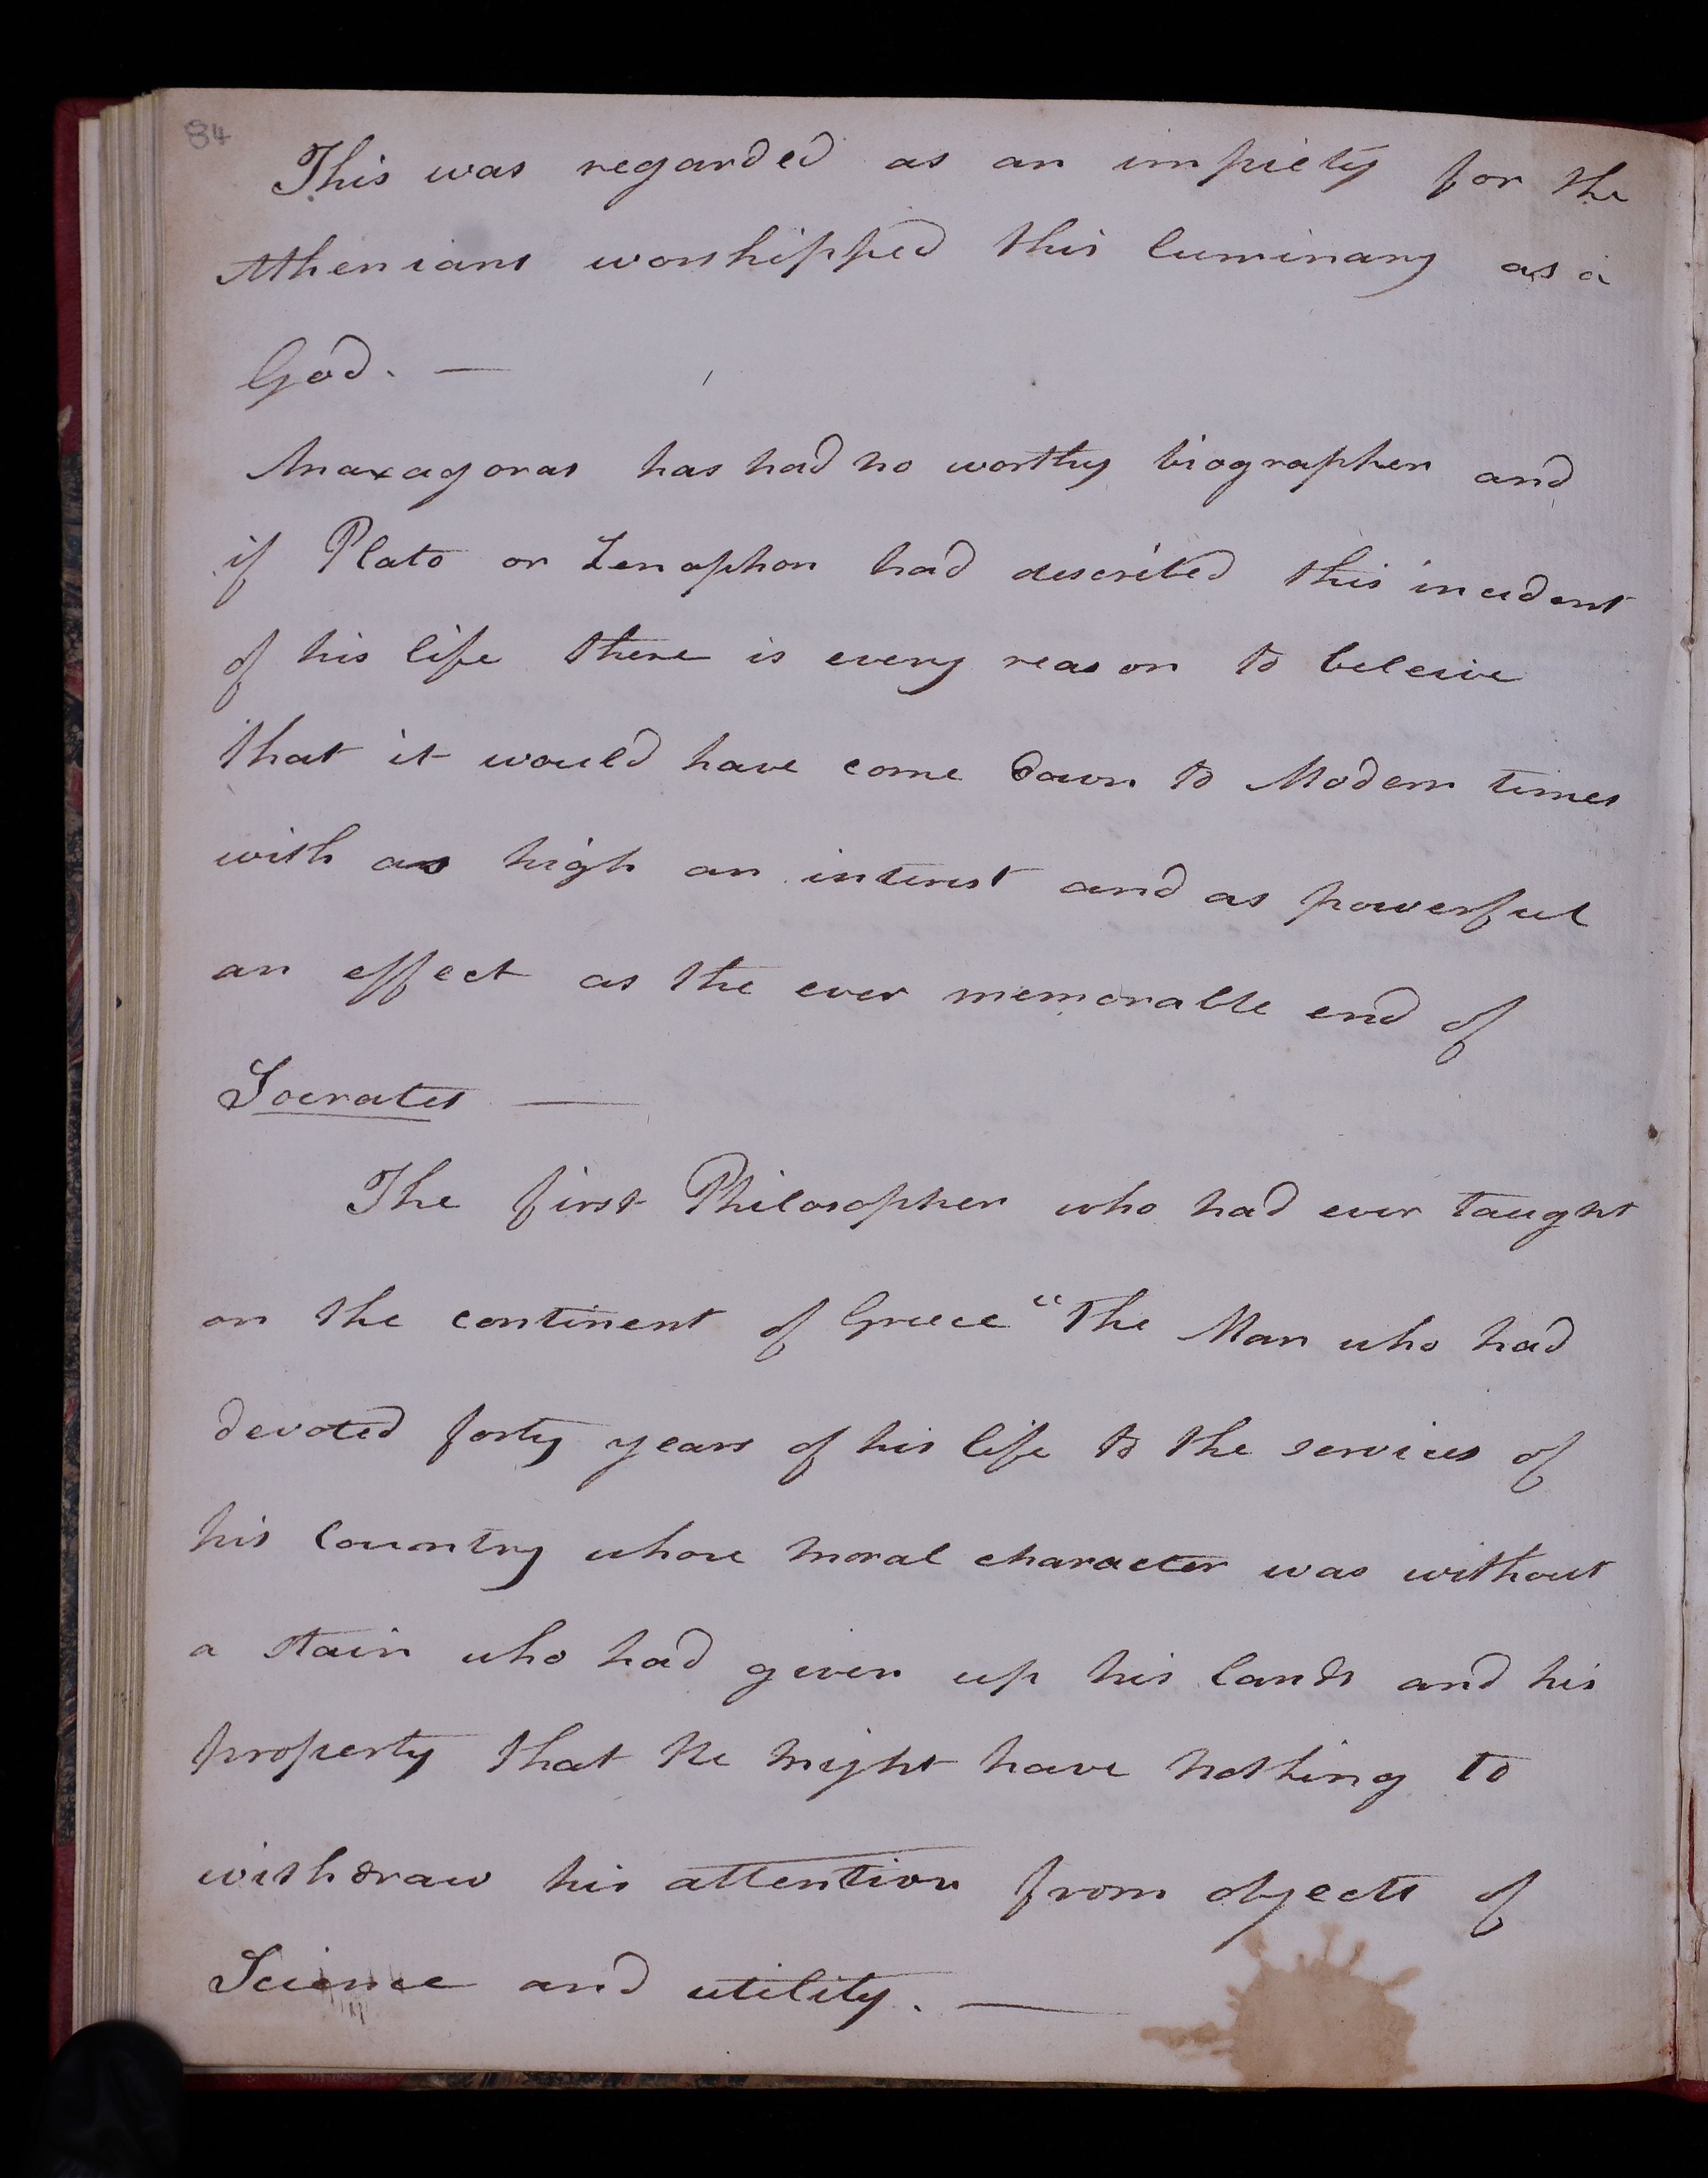 84
This was regarded as an impiety for the
Athenians worshipped this luminary as a
God. —
Anaxagoras has had no worthy biographer and
if Plato or Zenophon had described this incident
of his life there is every reason to beleive
that it would have come down to Modern times
with as high an interest and as powerful
an effect as the ever memorable end of
Socrates —
The first Philosopher who had ever taught
on the continent of Greece "The Man who had
devoted forty years of his life to the services of
his Country whose moral character was without
a stain who had given up his lands and his
property that he might have nothing to
withdraw his attention from objects of
Science and utility. —